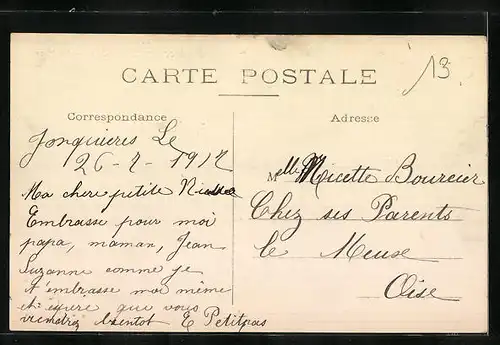 13
CARTE POSTALE
Correspondance
Adresse
Jonquieres Le
26-2-1912
Ma chere petite
Embrasse pour moi
papa, maman, Jean
Suzanne comme je
t'embrasse moi même
que vous
bientot E Petitpas
Melle Nicette Bourcier
Chez ses Parents
le Meuse
Oise